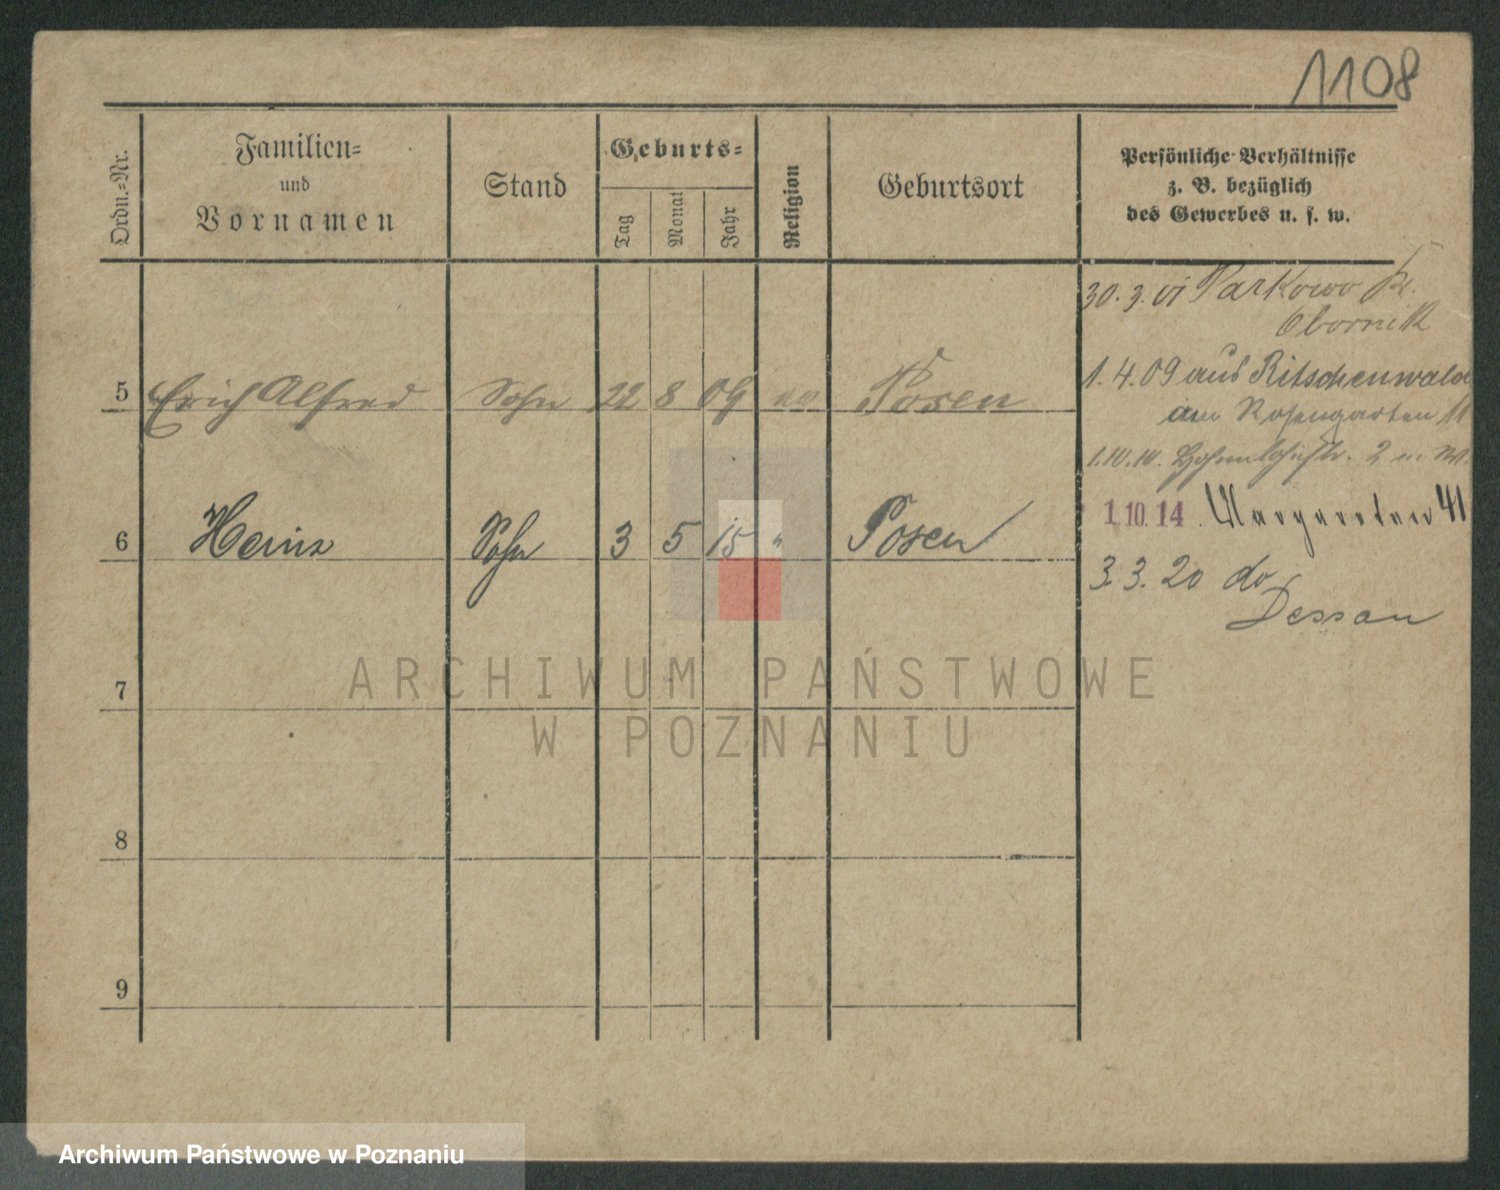 1108
Ordn.-Nr.
Familien-
und
Vornamen
Stand
Geburts-
Tag
Monat
Jahr
Religion
Geburtsort
Persönliche Verhältnisse
z. B. bezüglich
des Gewerbes u. s. w.
30.3.01 Parkowo Kr.
Obornik
1.4.09 aus Ritschenwalde
am Rosengarten 11
5 Erich Alfred Sohn 22 8 09 Posen
1.10.10. 2
1.10.14. Margareten 41
6 Heinz Sohn 3 5 15 " Posen
3.3.20 do
Dessau
7
8
9
ARCHIWUM PAŃSTWOWE
W POZNANIU
Archiwum Państwowe w Poznaniu